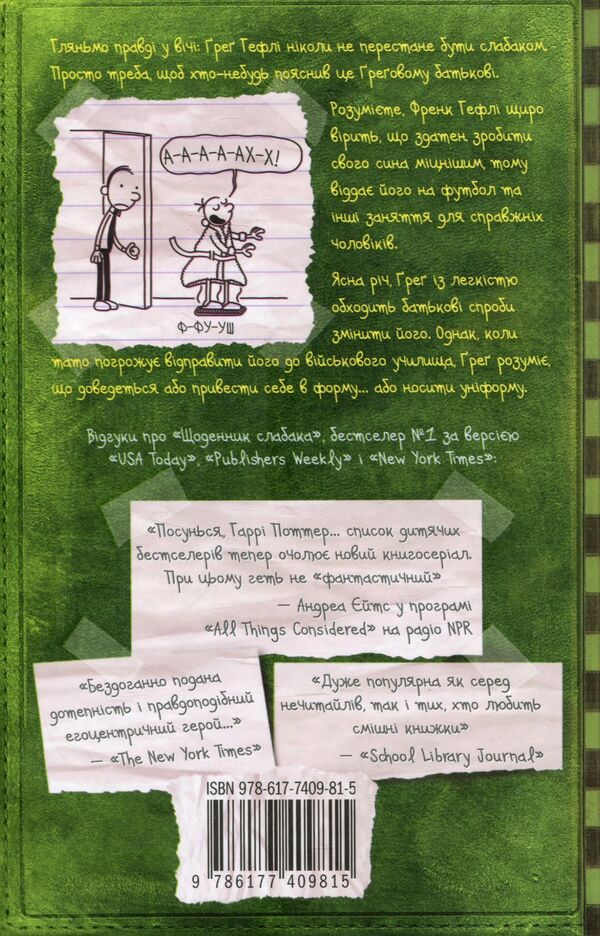 Гляньмо правді у вічі: Ґреґ Гефлі ніколи не перестане бути слабаком.
Просто треба, щоб хто-небудь пояснив це Ґреґовому батькові.
А-А-А-А-АХ-Х!
Ф-ФУ-УШ
Розумієте, Френк Гефлі щиро
вірить, що здатен зробити
свого сина міцнішим, тому
віддає його на футбол та
інші заняття для справжніх
чоловіків.
Ясна річ, Ґреґ із легкістю
обходить батькові спроби
змінити його. Однак, коли
тато погрожує відправити його до військового училища, Ґреґ розуміє,
що доведеться або привести себе в форму... або носити уніформу.
Відгуки про «Щоденник слабака», бестселер №1 за версією
«USA Today», «Publishers Weekly» і «New York Times»:
«Посунься, Гаррі Поттер... список дитячих
бестселерів тепер очолює новий книгосеріал.
При цьому геть не «фантастичний»
— Андреа Сйтс у програмі
«All Things Considered» на радіо NPR
«Бездоганно подана
дотепність і правдоподібний
егоцентричний герой...»
— «The New York Times»
«Дуже популярна як серед
нечитайлів, так і тих, хто любить
смішні книжки»
— «School Library Journal»
ISBN 978-617-7409-81-5
9 786177 409815